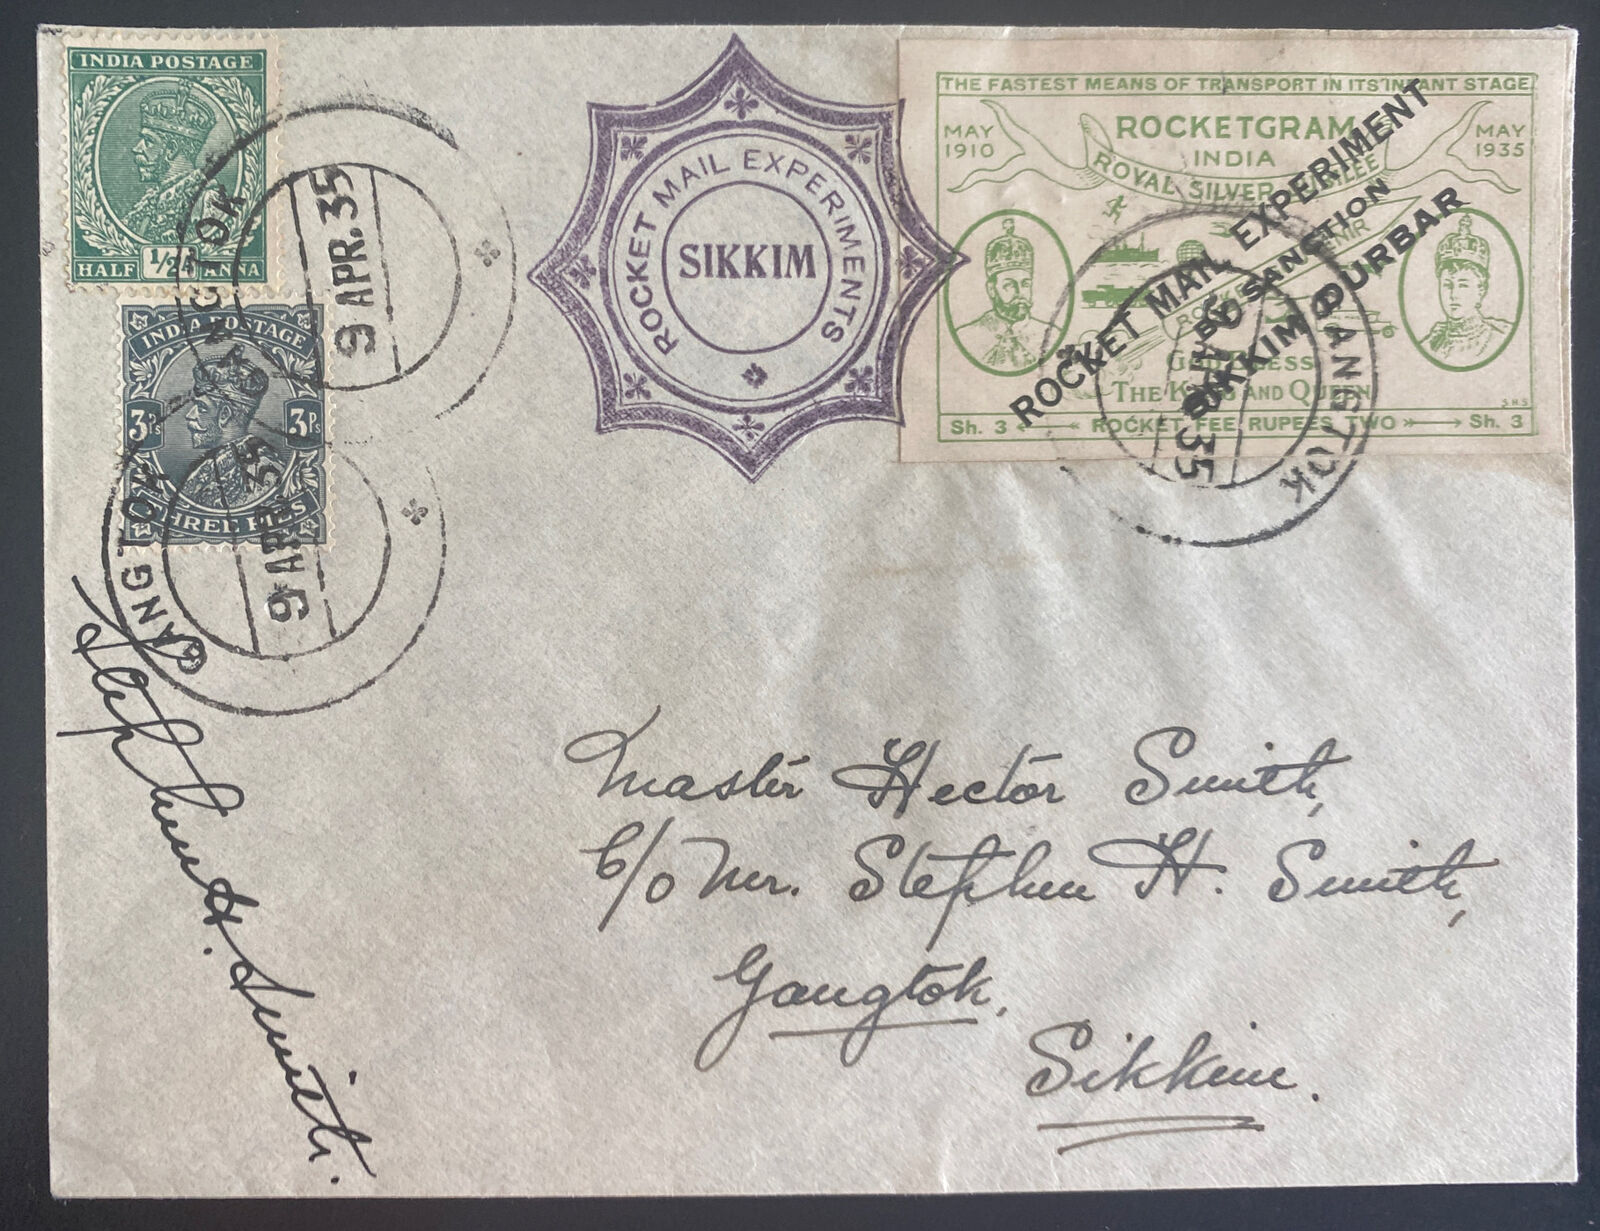 INDIA POSTAGE
1/2A
HALF ANNA
INDIA POSTAGE
3Ps 3Ps
THREE PIES
GANGTOK
9 APR. 35
GANGTOK
9 APR. 35
ROCKET MAIL EXPERIMENTS
SIKKIM
THE FASTEST MEANS OF TRANSPORT IN ITS INFANT STAGE
MAY 1910
ROCKETGRAM
INDIA
MAY 1935
ROYAL SILVER JUBILEE
GOD BLESS
THE KING AND QUEEN
S.H.S
Sh. 3 ROCKET FEE RUPEES TWO Sh. 3
ROCKET MAIL EXPERIMENT
BY SANCTION
SIKKIM DURBAR
GANGTOK
35
Stephen H. Smith.
Master Hector Smith,
C/o Mr. Stephen H. Smith,
Gangtok,
Sikkim.